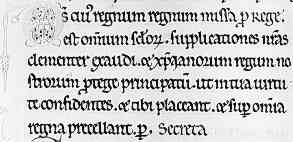 DS̄ cui᷒ regnum regnum missa ꝓ Rege.
est om̄ium sc̄lor̄. supplicationes nr̄as
clementer exaudi. et xp̄ianorum regum no
strorum ꝓtege principatū. ut in tua uirtu
te confidentes. et tibi placeant. et sup̄ om̄ia
regna precellant. p̄. Secreta